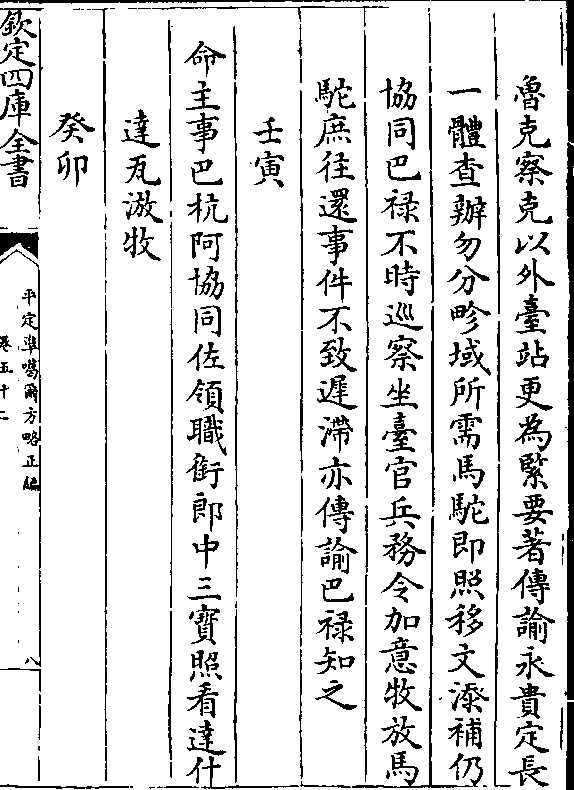 魯克察克以外臺站更為緊要著傳諭永貴定長
一體查辦勿分畛域所需馬駝即照移文添補仍
協同巴祿不時巡察坐臺官兵務令加意牧放馬
駝庶往還事件不致遲滯亦傳諭巴祿知之
壬寅
命主事巴杭阿協同佐領職銜郎中三寶照看達什
達瓦游牧
癸卯
欽定四庫全書
平定準噶爾方略正編
卷五十二
八